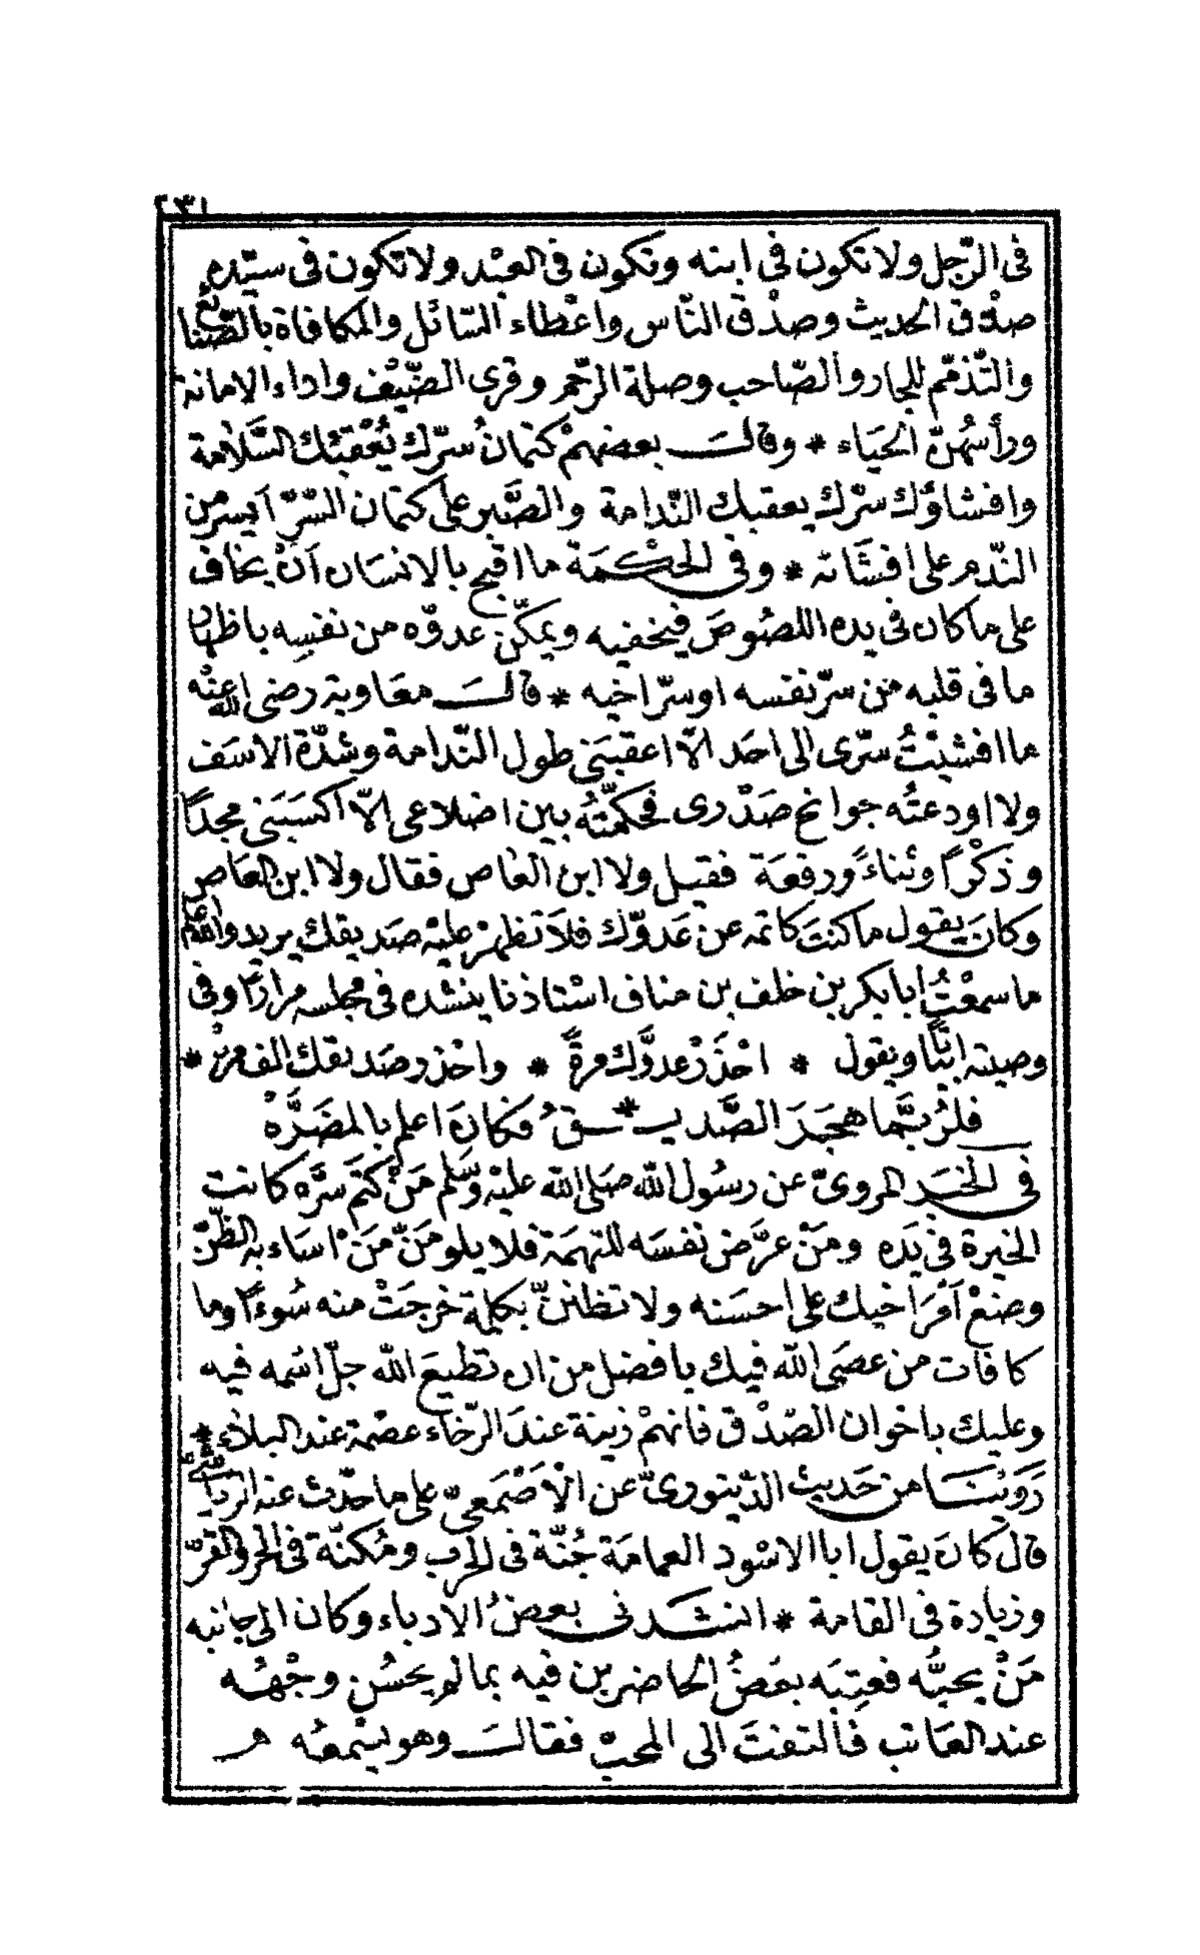 ٢٣١
فى الرّجل ولا تكون فى ابنه وتكون فى العبْد ولا تكون فى سيّده
صدْق الحديث وصدْق النّاس واعْطاء السّائل والمكافاة بالصّنائع
والتّذمّم للجار والصّاحب وصلة الرّحم وقرى الضّيْف واداء الامانة
ورأسُهنّ الحيَاء * وقالـــَ بعضهمْ كتمانُ سرّك يُعْقبُك السَّلامة
وافشاؤك سرّك يعقبك النّدامة والصَّبر على كتمان السّرّ اَيسر من
النّدم على افشَائه * وفى الحكْمَة ما اقبح بالانسَان اَنْ يخاف
على ما كان فى يده اللصُوصَ فيخفيه ويمكّن عدوّه من نفسِه باظهار
ما فى قلبه من سرّ نفسه اوسرّ اخيه * قالـــَ معَاوية رضى الله عنْه
ما افشيْتُ سرّى الى احَد الّا اعقبَنى طول النّدامة وشدّة الاسَف
ولا اودعتُه جوانح صَدْرى فحكمّتُه بين اضلاعى الّا اكسَبَنى مجدًا
وذكْرًا وثناءً ورفعَة فقيل ولا ابن العَاص فقال ولا ابن العَاص
وكانَ يقول ما كنتَ كاتمه عن عَدوّك فلاَ تظهرْ عليْه صَديقك يريد والله اعلم
ما سمعْتُ ابا بكر بن خلف بن مناف اسْتاذنا ينشده فى مجلسه مرارًا وفى
وصيته ابنًا ويقول * احْذَرْ عدوَّك مرةً * واحْذر صَديقك الف مرّة *
فلرُبّما هجَرَ الصَّديــ*ــقُ فكانَ اعلم بالمضَرَّهْ
فى الخبَر المروىّ عن رسُول الله صَلى الله عليْه وَسَلم مَنْ كتَمَ سَرَّه كانت
الخيرة فى يَده ومَنْ عرَّض نفسَه للتهمَة فلا يلومَنّ مَنْ اسَاء به الظّنّ
وضعْ اَمْرَ اخيك على احسَنه ولا تظننّ بكلمة خرجَتْ منه سُوءًا وما
كافات من عصَى الله فيك بافضل من ان تطيعَ الله جلّ اسْمه فيه
وعليك باخوان الصّدْق فانهمْ زينة عندَ الرّخاء عصْمة عند البلاء *
رَوَيْنـــَا من حَديث الدّينورىّ عن الْاَصْمَعىّ على ما حدّث عنه الرّياشىّ
قال كانَ يقول ابا الاسْود العمامَة جُنّة فى الحرب ومُكنّة فى الحرّ والقرّ
وزيادة فى القامة * انشـــَدنى بعضُ الاُدباء وكان الى جانبه
مَنْ يحبُّه فعتِبَه بعَضُ الحاضرين فيه بما لم يحسُن وجْهُه
عند العَاتب فالتفتَ الى المحبّ فقالـــَ وهو يسْمعُه